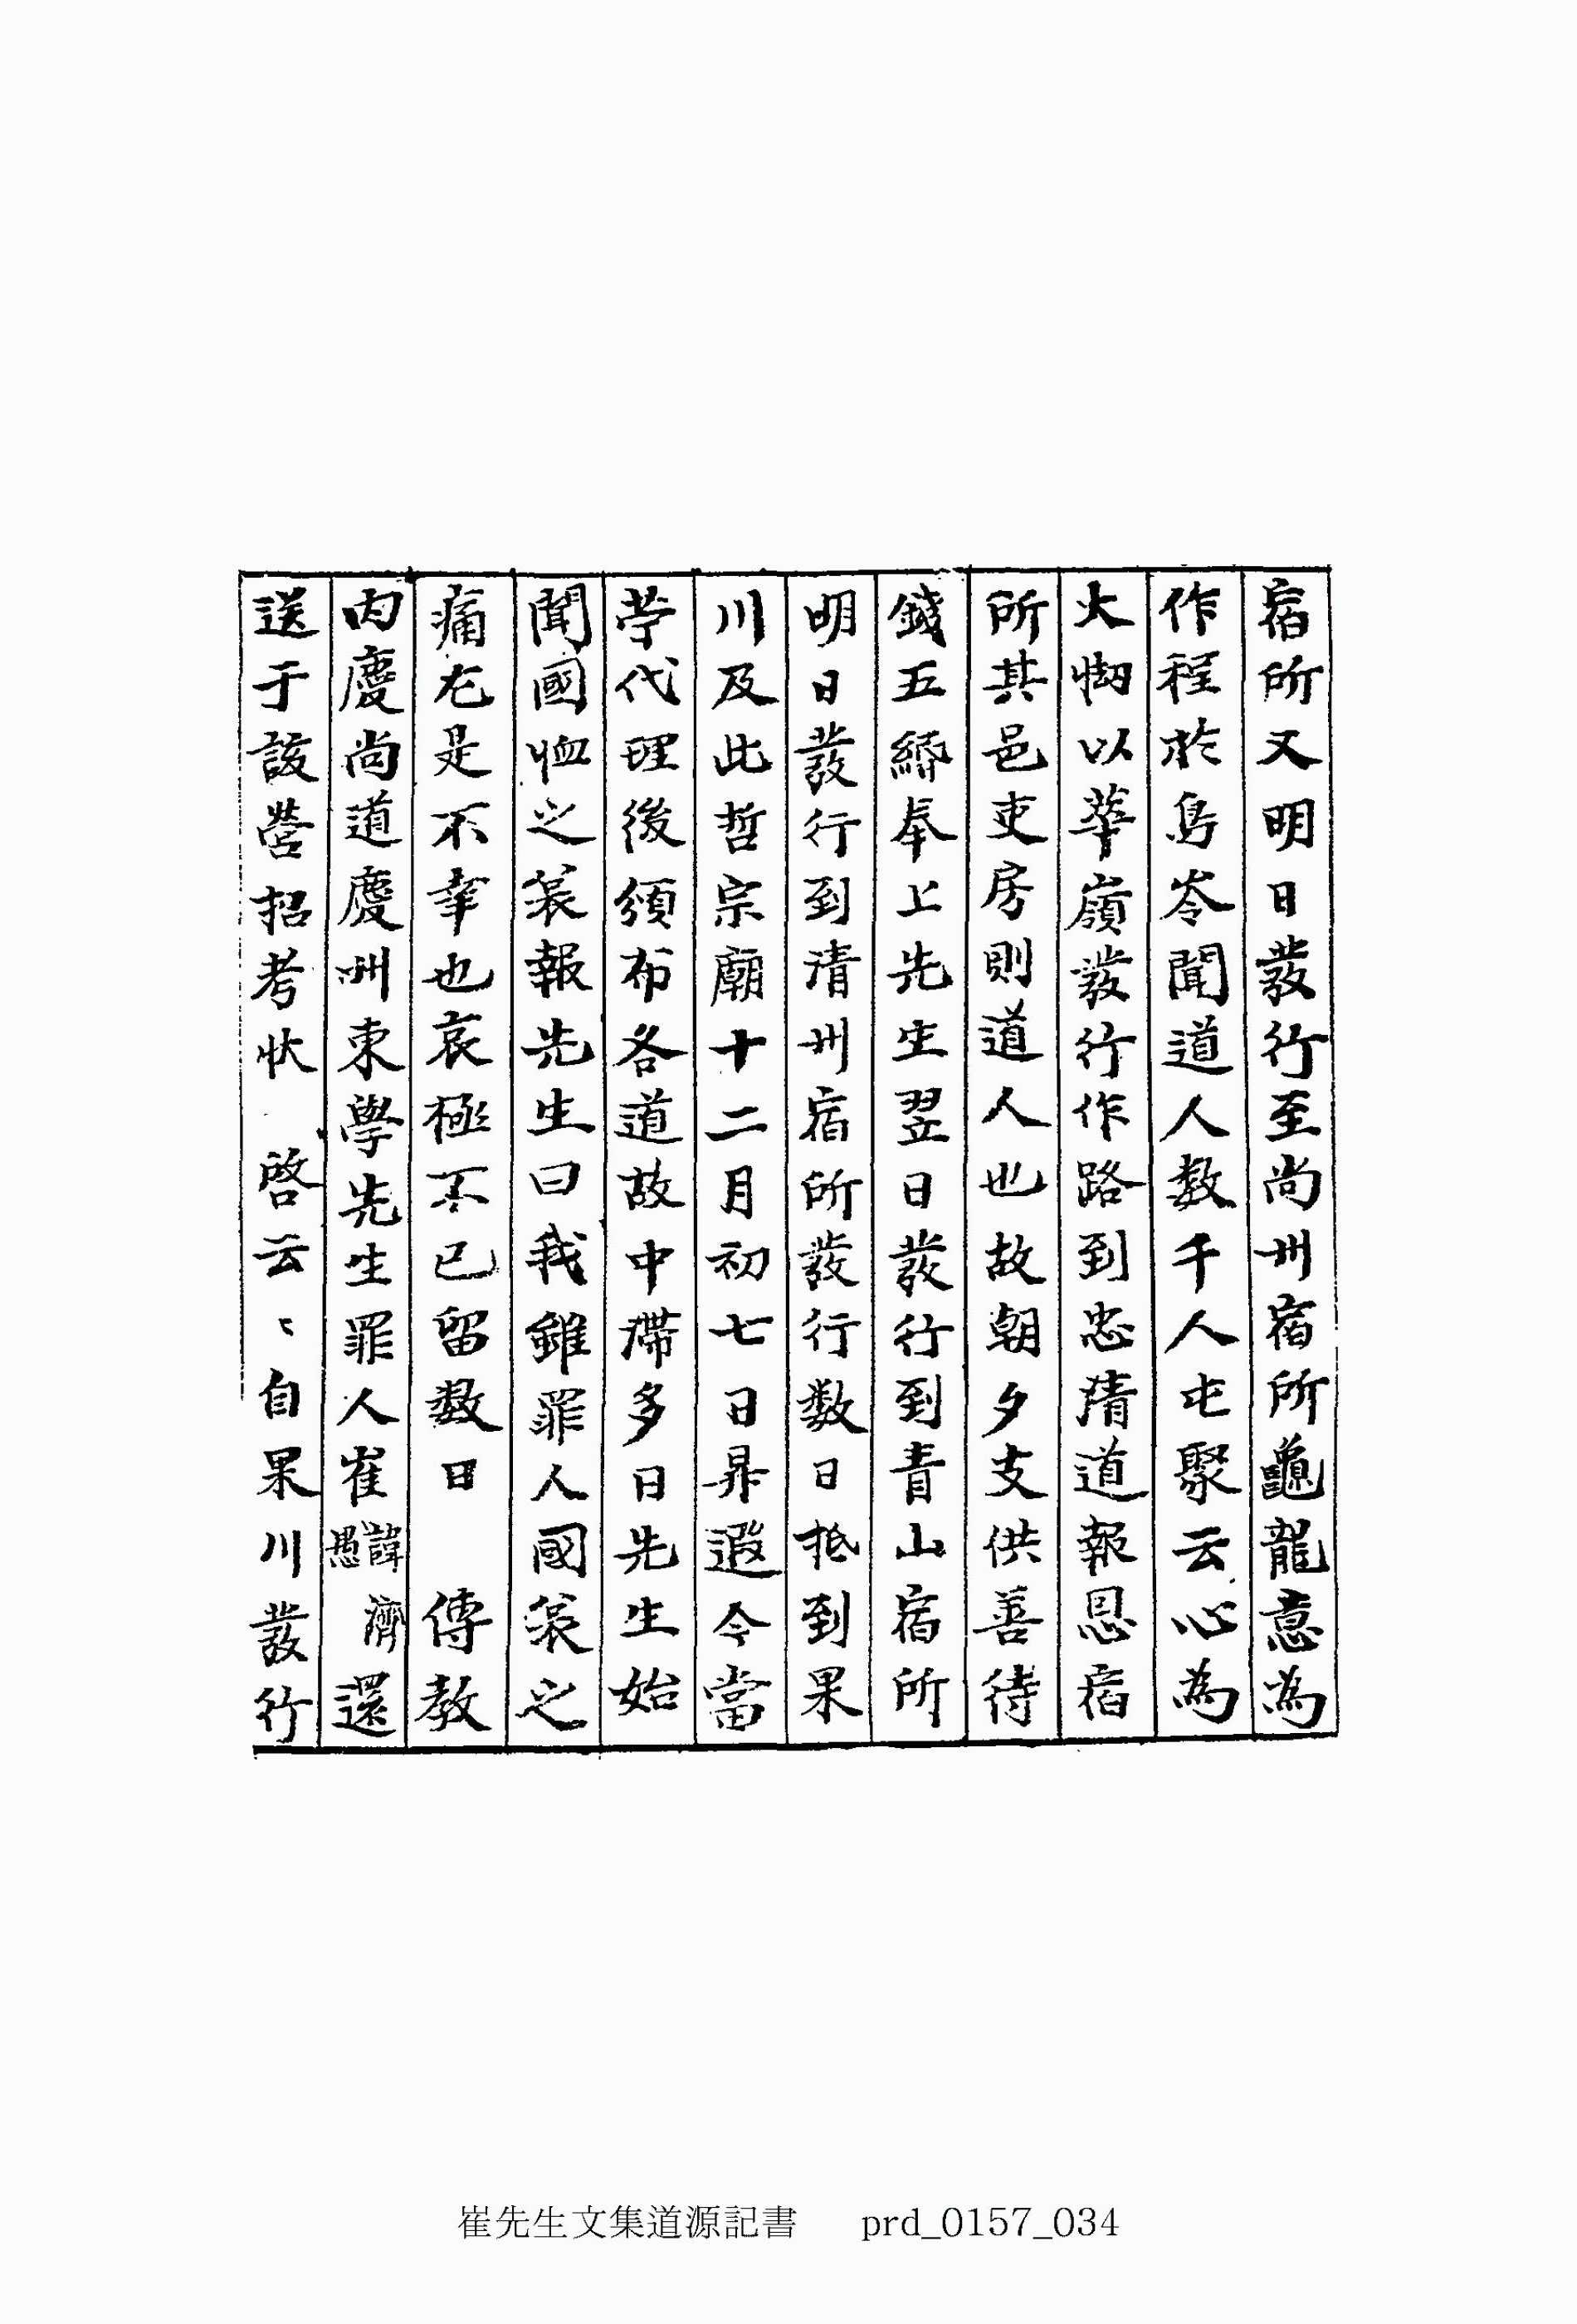 宿所又明日發行至尚州宿所龜龍意為
作程於鳥岺聞道人数千人屯聚云心為
大㤼以華嶺發行作路到忠清道報恩宿
所其邑吏房則道人也故朝夕支供善待
錢五緡奉上先生翌日發行到青山宿所
明日發行到清州宿所發行数日抵到果
川及此哲宗廟十二月初七日昇遐今當
苧代理後頒布各道故中滯多日先生始
聞國恤之哀報先生曰我雖罪人國哀之
痛尤是不幸也哀極不已留数日 傳教
內慶尚道慶州東學先生罪人崔諱濟愚還
送于該營招考状 啓云〻自果川發行
崔先生文集道源記書 prd_0157_034